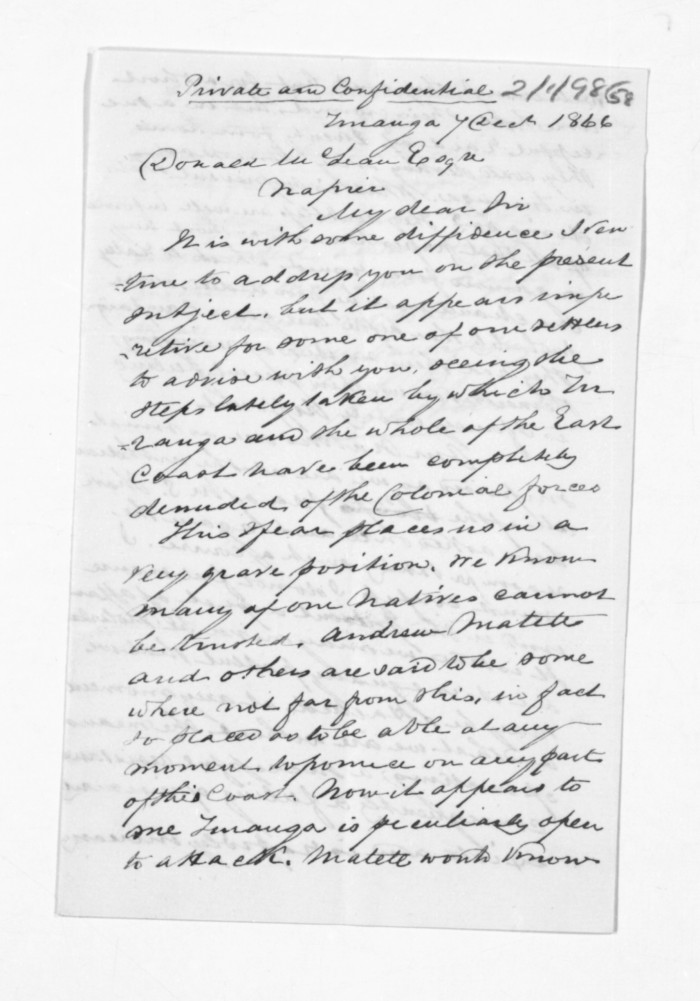 Private and Confidential 2/1/98658
Turanga 7 Dect 1866
Donald McLean Esqre
Napier
My dear Sir
It is with some diffidence I ven
-ture to address you on the present
subject, but it appears impe
-retive for some one of our settlers
to advise with you, seeing the
steps lately taken by which Tu
-ranga and the whole of the East
Coast have been completely
denuded of the Colonial forces
This I fear places us in a
very grave position. We know
many of our Natives cannot
be trusted. Andrew Matete
and others are said to be some
where not far from this, in fact
so placed as to be able at any
moment to pounce on any part
of this Coast. Now it appears to
me Turanga is peculiarly open
to attack. Matete would know